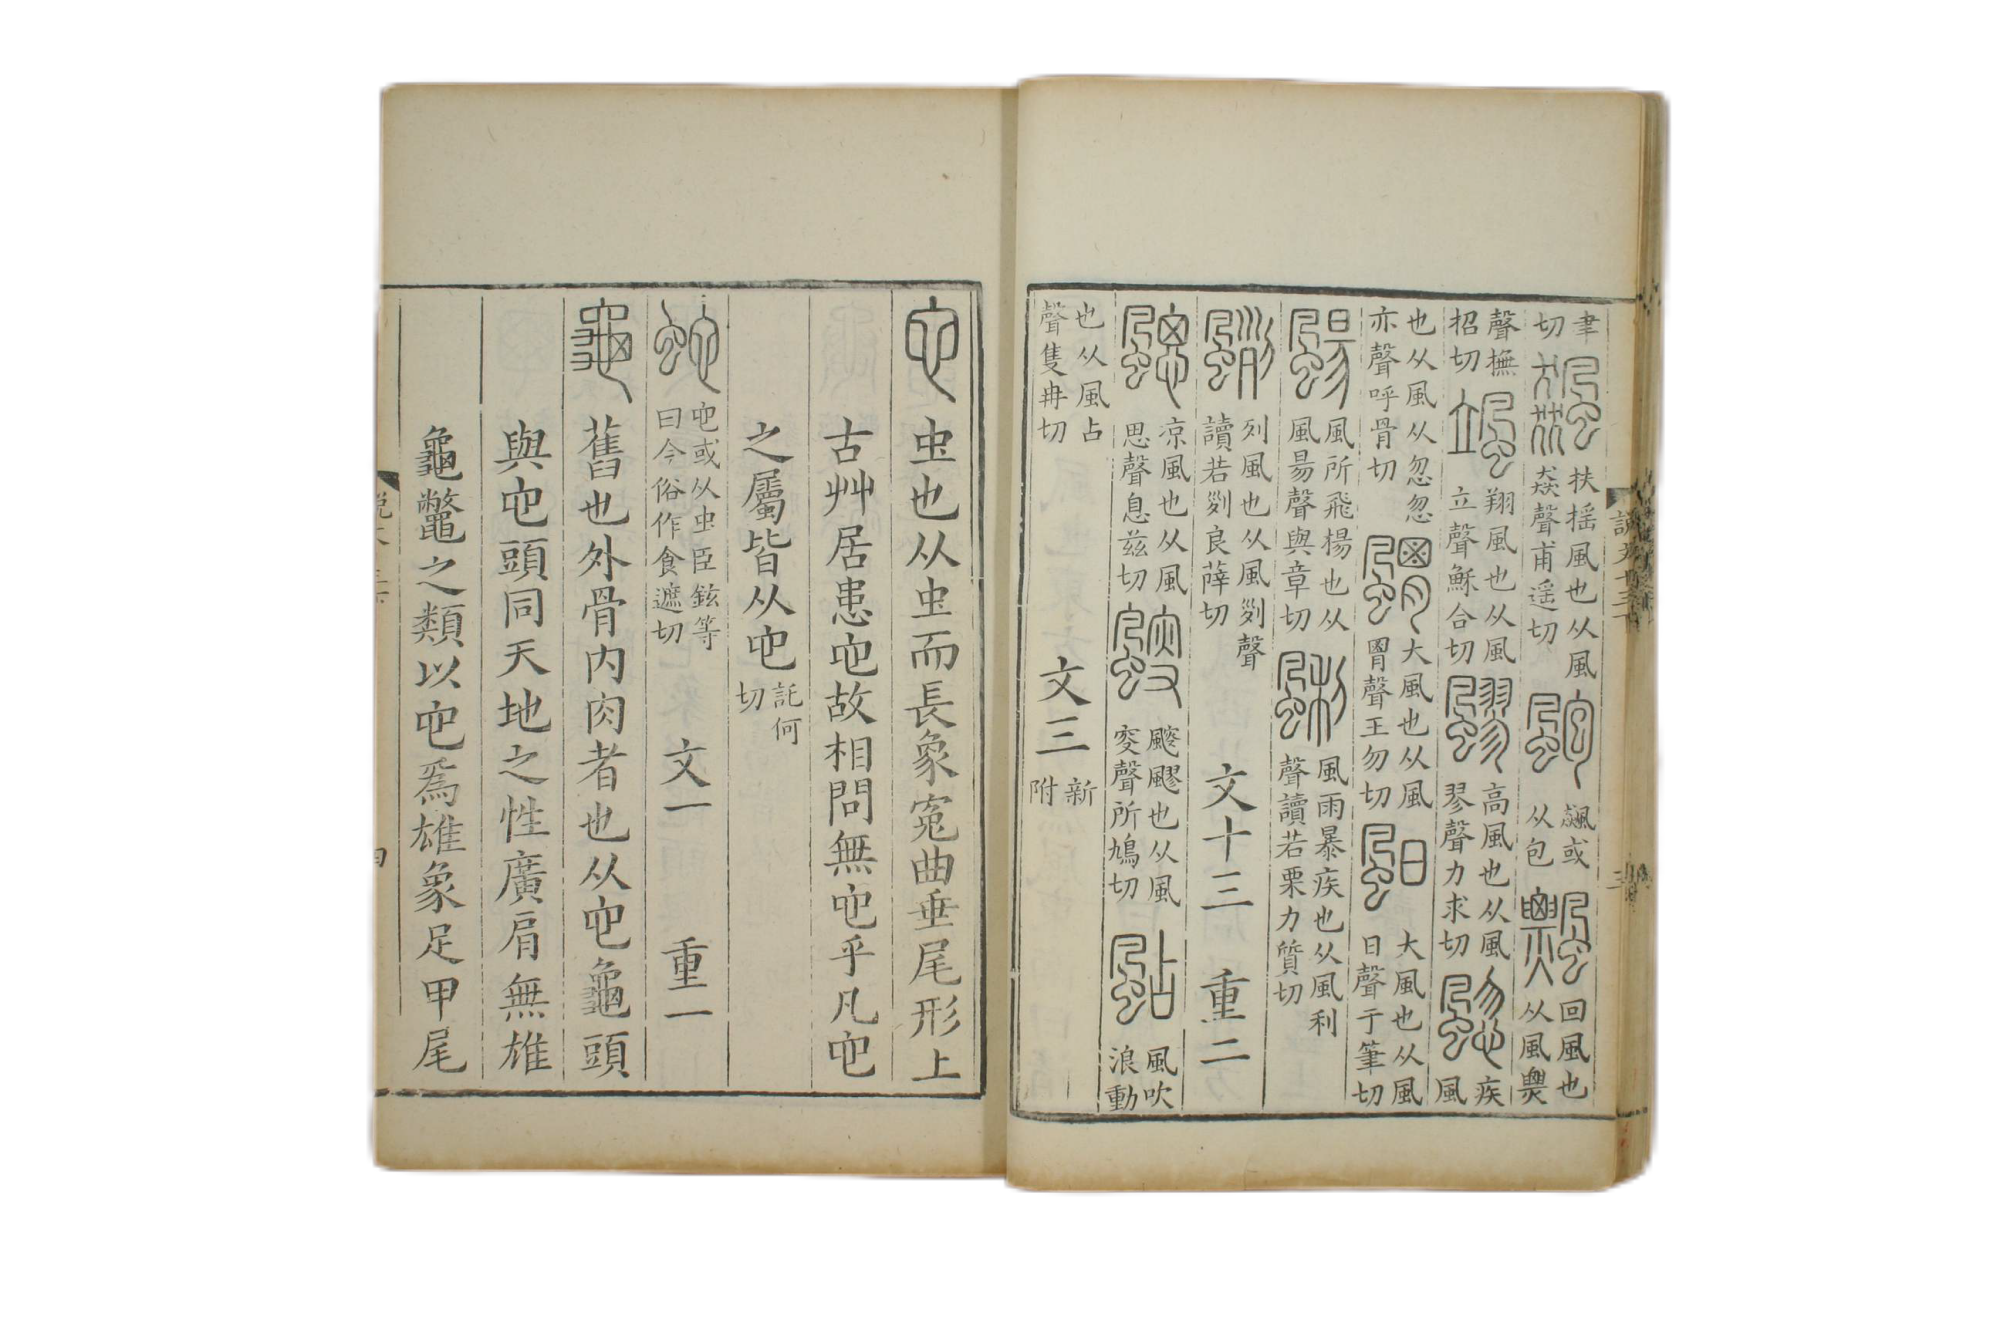 聿切 飆 扶摇風也从風猋聲甫遥切 颮 飆或从包 飄 回風也从風㷠
聲撫招切 颯 翔風也从風立聲穌合切 飂 高風也从風翏聲力求切 疾風
也从風从忽忽亦聲呼骨切 䬍 大風也从風胃聲王勿切 䫻 大風也从風日聲于筆切
颺 風所飛揚也从風昜聲與章切 颲 風雨暴疾也从風利聲讀若栗力質切
䬅 列風也从風𠛱聲讀若𠛱良薛切 文十三 重二
颸 凉風也从風思聲息兹切 颼 颼飂也从風叜聲所鳩切 颭 風吹浪動
也从風占聲隻冉切 文三 新附
它 虫也从虫而長象冤曲垂尾形上
古艸居患它故相問無它乎凡它
之屬皆从它 託何切
蛇 它或从虫臣鉉等曰今俗作食遮切 文一 重一
龜 舊也外骨内肉者也从它龜頭
與它頭同天地之性廣肩無雄
龜鼈之類以它爲雄象足甲尾